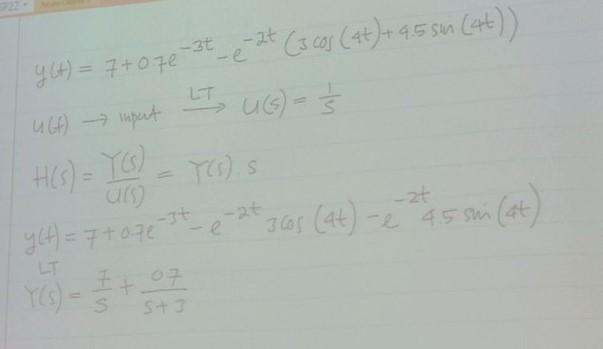 SP22
y(t) = 7 + 0.7e^{-3t} - e^{-2t} (3 cos(4t) + 4.5 sin(4t))
u(t) → input LT→ U(s) = 1/s
H(s) = Y(s)/U(s) = Y(s) s
y(t) = 7 + 0.7e^{-3t} - e^{-2t} 3 cos(4t) - e^{-2t} 4.5 sin(4t)
LT
Y(s) = 7/s + 0.7/(s+3)